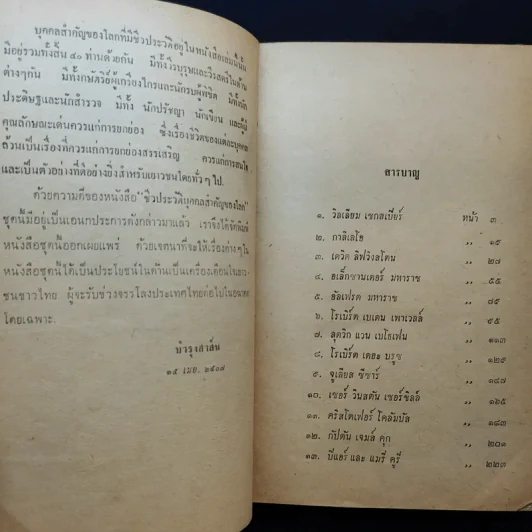 บุคคลสำคัญของโลกที่มีชีวประวัติอยู่ในหนังสือเล่มนี้นั้น
มีอยู่รวมทั้งสิ้น ๔๐ ท่านด้วยกัน มีทั้งวีรบุรุษและวีรสตรีในด้าน
ต่างๆกัน มีทั้งกษัตริย์ผู้เกรียงไกรและนักรบผู้พิชิต มีทั้งนัก
ประดิษฐและนักสำรวจ มีทั้ง นักปรัชญา นักเขียน และผู้มี
คุณลักษณะเด่นควรแก่การยกย่อง ซึ่งเรื่องชีวิตของแต่ละบุคคล
ล้วนเป็นเรื่องที่ควรแก่การยกย่องสรรเสริญ ควรแก่การสนใจ
และเป็นตัวอย่างที่ดีอย่างยิ่งสำหรับเยาวชนโดยทั่ว ๆ ไป.
ด้วยความดีของหนังสือ "ชีวประวัติบุคคลสำคัญของโลก"
ชุดนี้มีอยู่เป็นเอนกประการดังกล่าวมาแล้ว เราจึงได้จัดพิมพ์
หนังสือชุดนี้ออกเผยแพร่ ด้วยเจตนาที่จะให้เรื่องต่างๆใน
หนังสือชุดนี้ได้เป็นประโยชน์ในด้านเป็นเครื่องเตือนใจเยาว-
ชนชาวไทย ผู้จะรับช่วงจรรโลงประเทศไทยต่อไปในอนาคต
โดยเฉพาะ.
บำรุงสาส์น
๑๕ เมย. ๒๕๐๙
สารบาญ
๑. วิลเลียม เชกสเปียร์ หน้า ๓
๒. กาลิเลโอ ,, ๑๕
๓. เดวิด ลิฟวิงสโตน ,, ๒๘
๔. อเล็กซานเดอร์ มหาราช ,, ๕๕
๕. อัลเฟรด มหาราช ,, ๘๕
๖. โรเบิร์ต เบเดน เพาเวลล์ ,, ๙๕
๗. ลุดวิก แวน เบโธเฟน ,, ๑๑๓
๘. โรเบิร์ต เดอะ บรูซ ,, ๑๒๙
๙. จูเลียส ซีซาร์ ,, ๑๔๗
๑๐. เซอร์ วินสตัน เชอร์ชิลล์ ,, ๑๖๕
๑๑. คริสโตเฟอร์ โคลัมบัส ,, ๑๘๗
๑๒. กัปตัน เจมส์ คุก ,, ๒๐๑
๑๓. ปีแอร์ และ แมรี คูรี ,, ๒๒๓